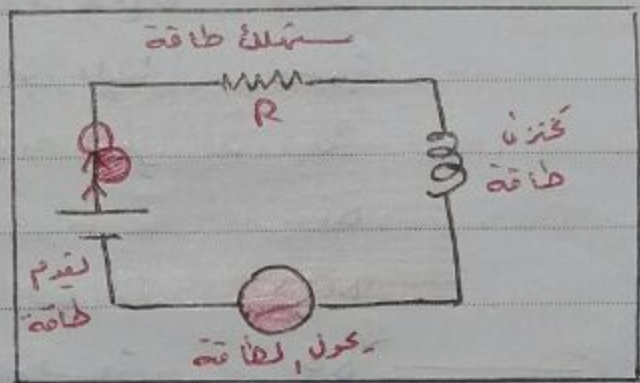 ستهلك طاقة
R
تختزن
طاقة
تقدم
طاقة
يحول الطاقة